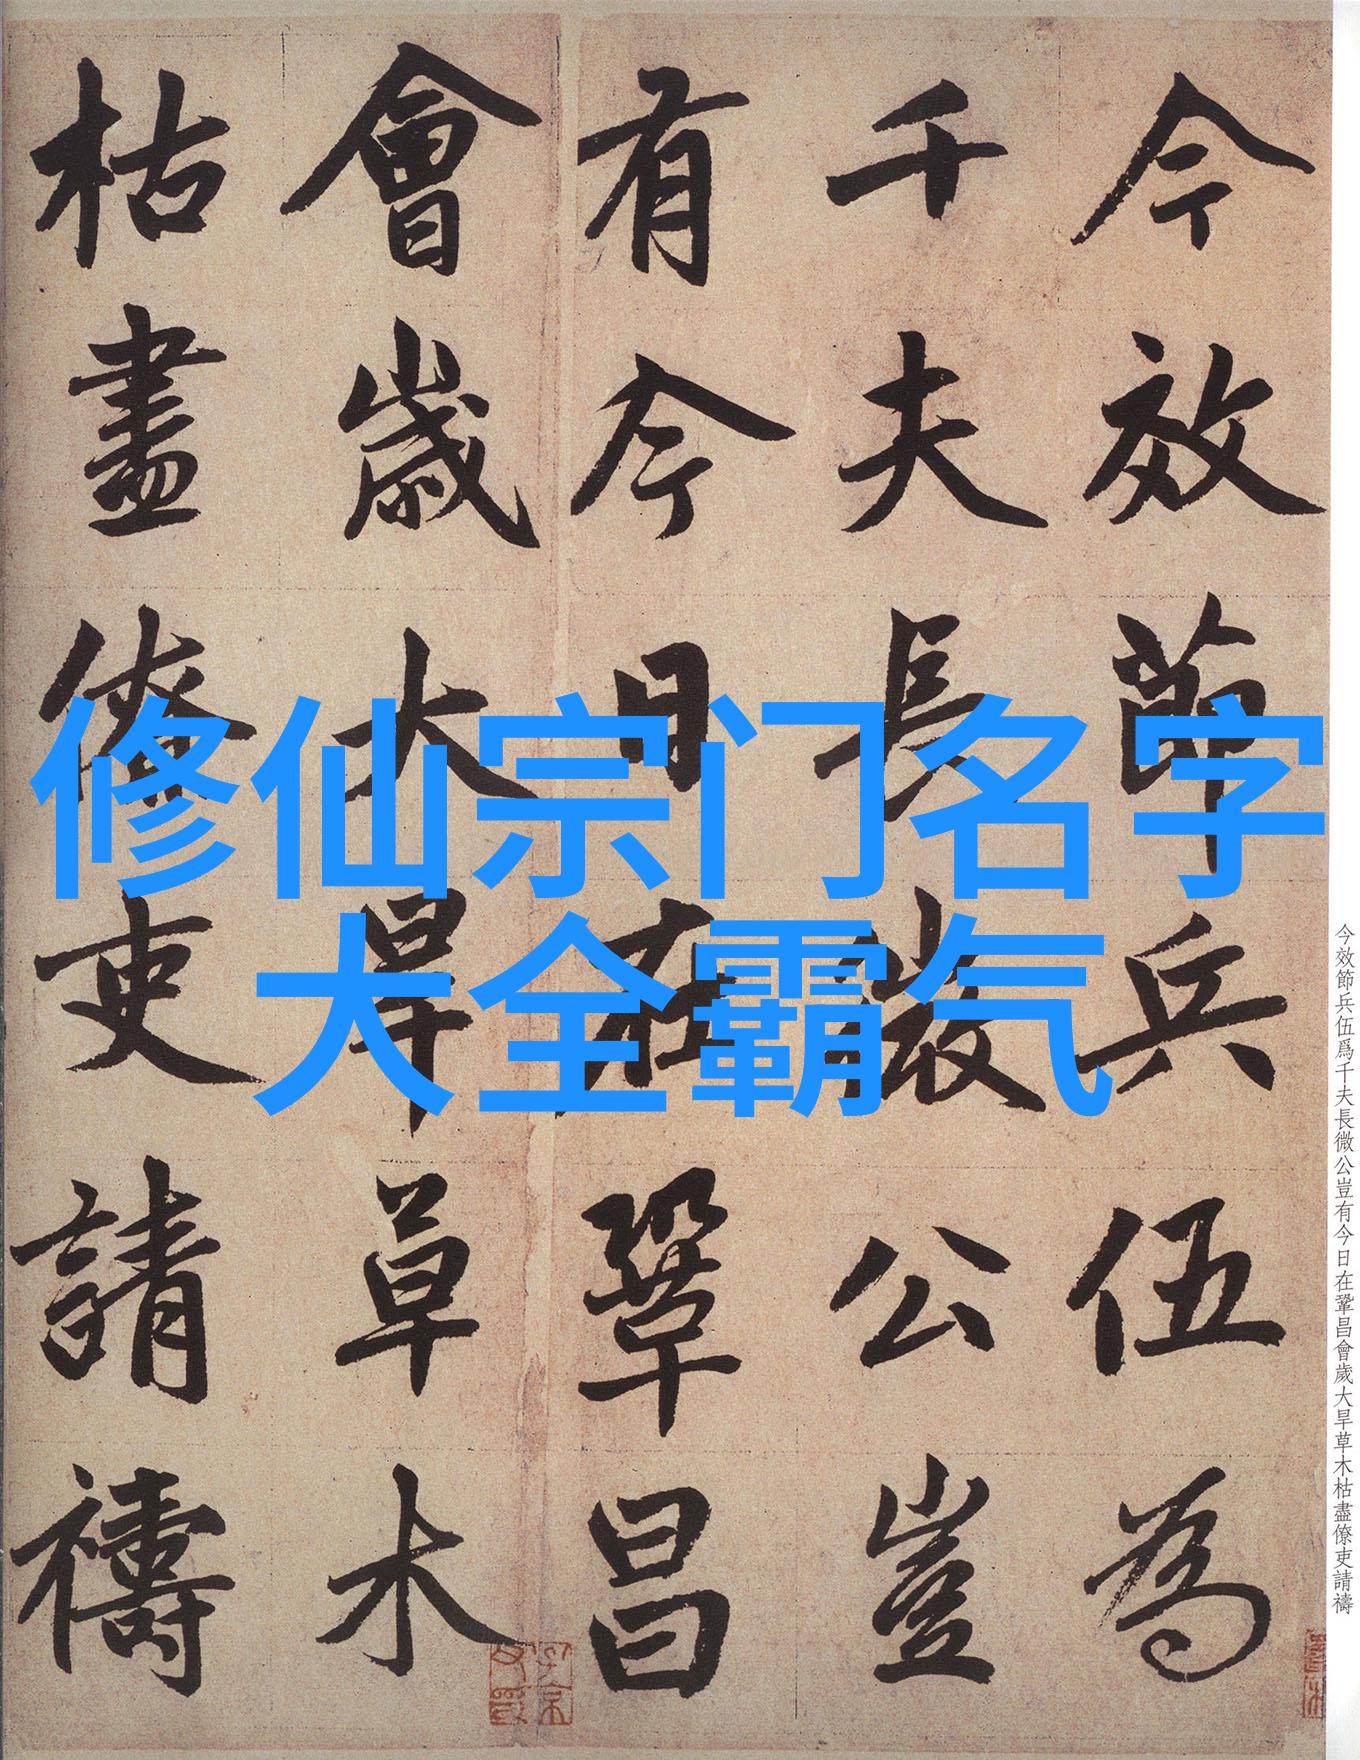 修仙宗门名字
大全霸气
今效節兵伍為
千夫長微公豈
有今日在鞏昌
會歲大旱草木
枯盡僚吏請禱
今效節兵伍爲千夫長微公豈有今日在鞏昌會歲大旱草木枯盡僚吏請禱